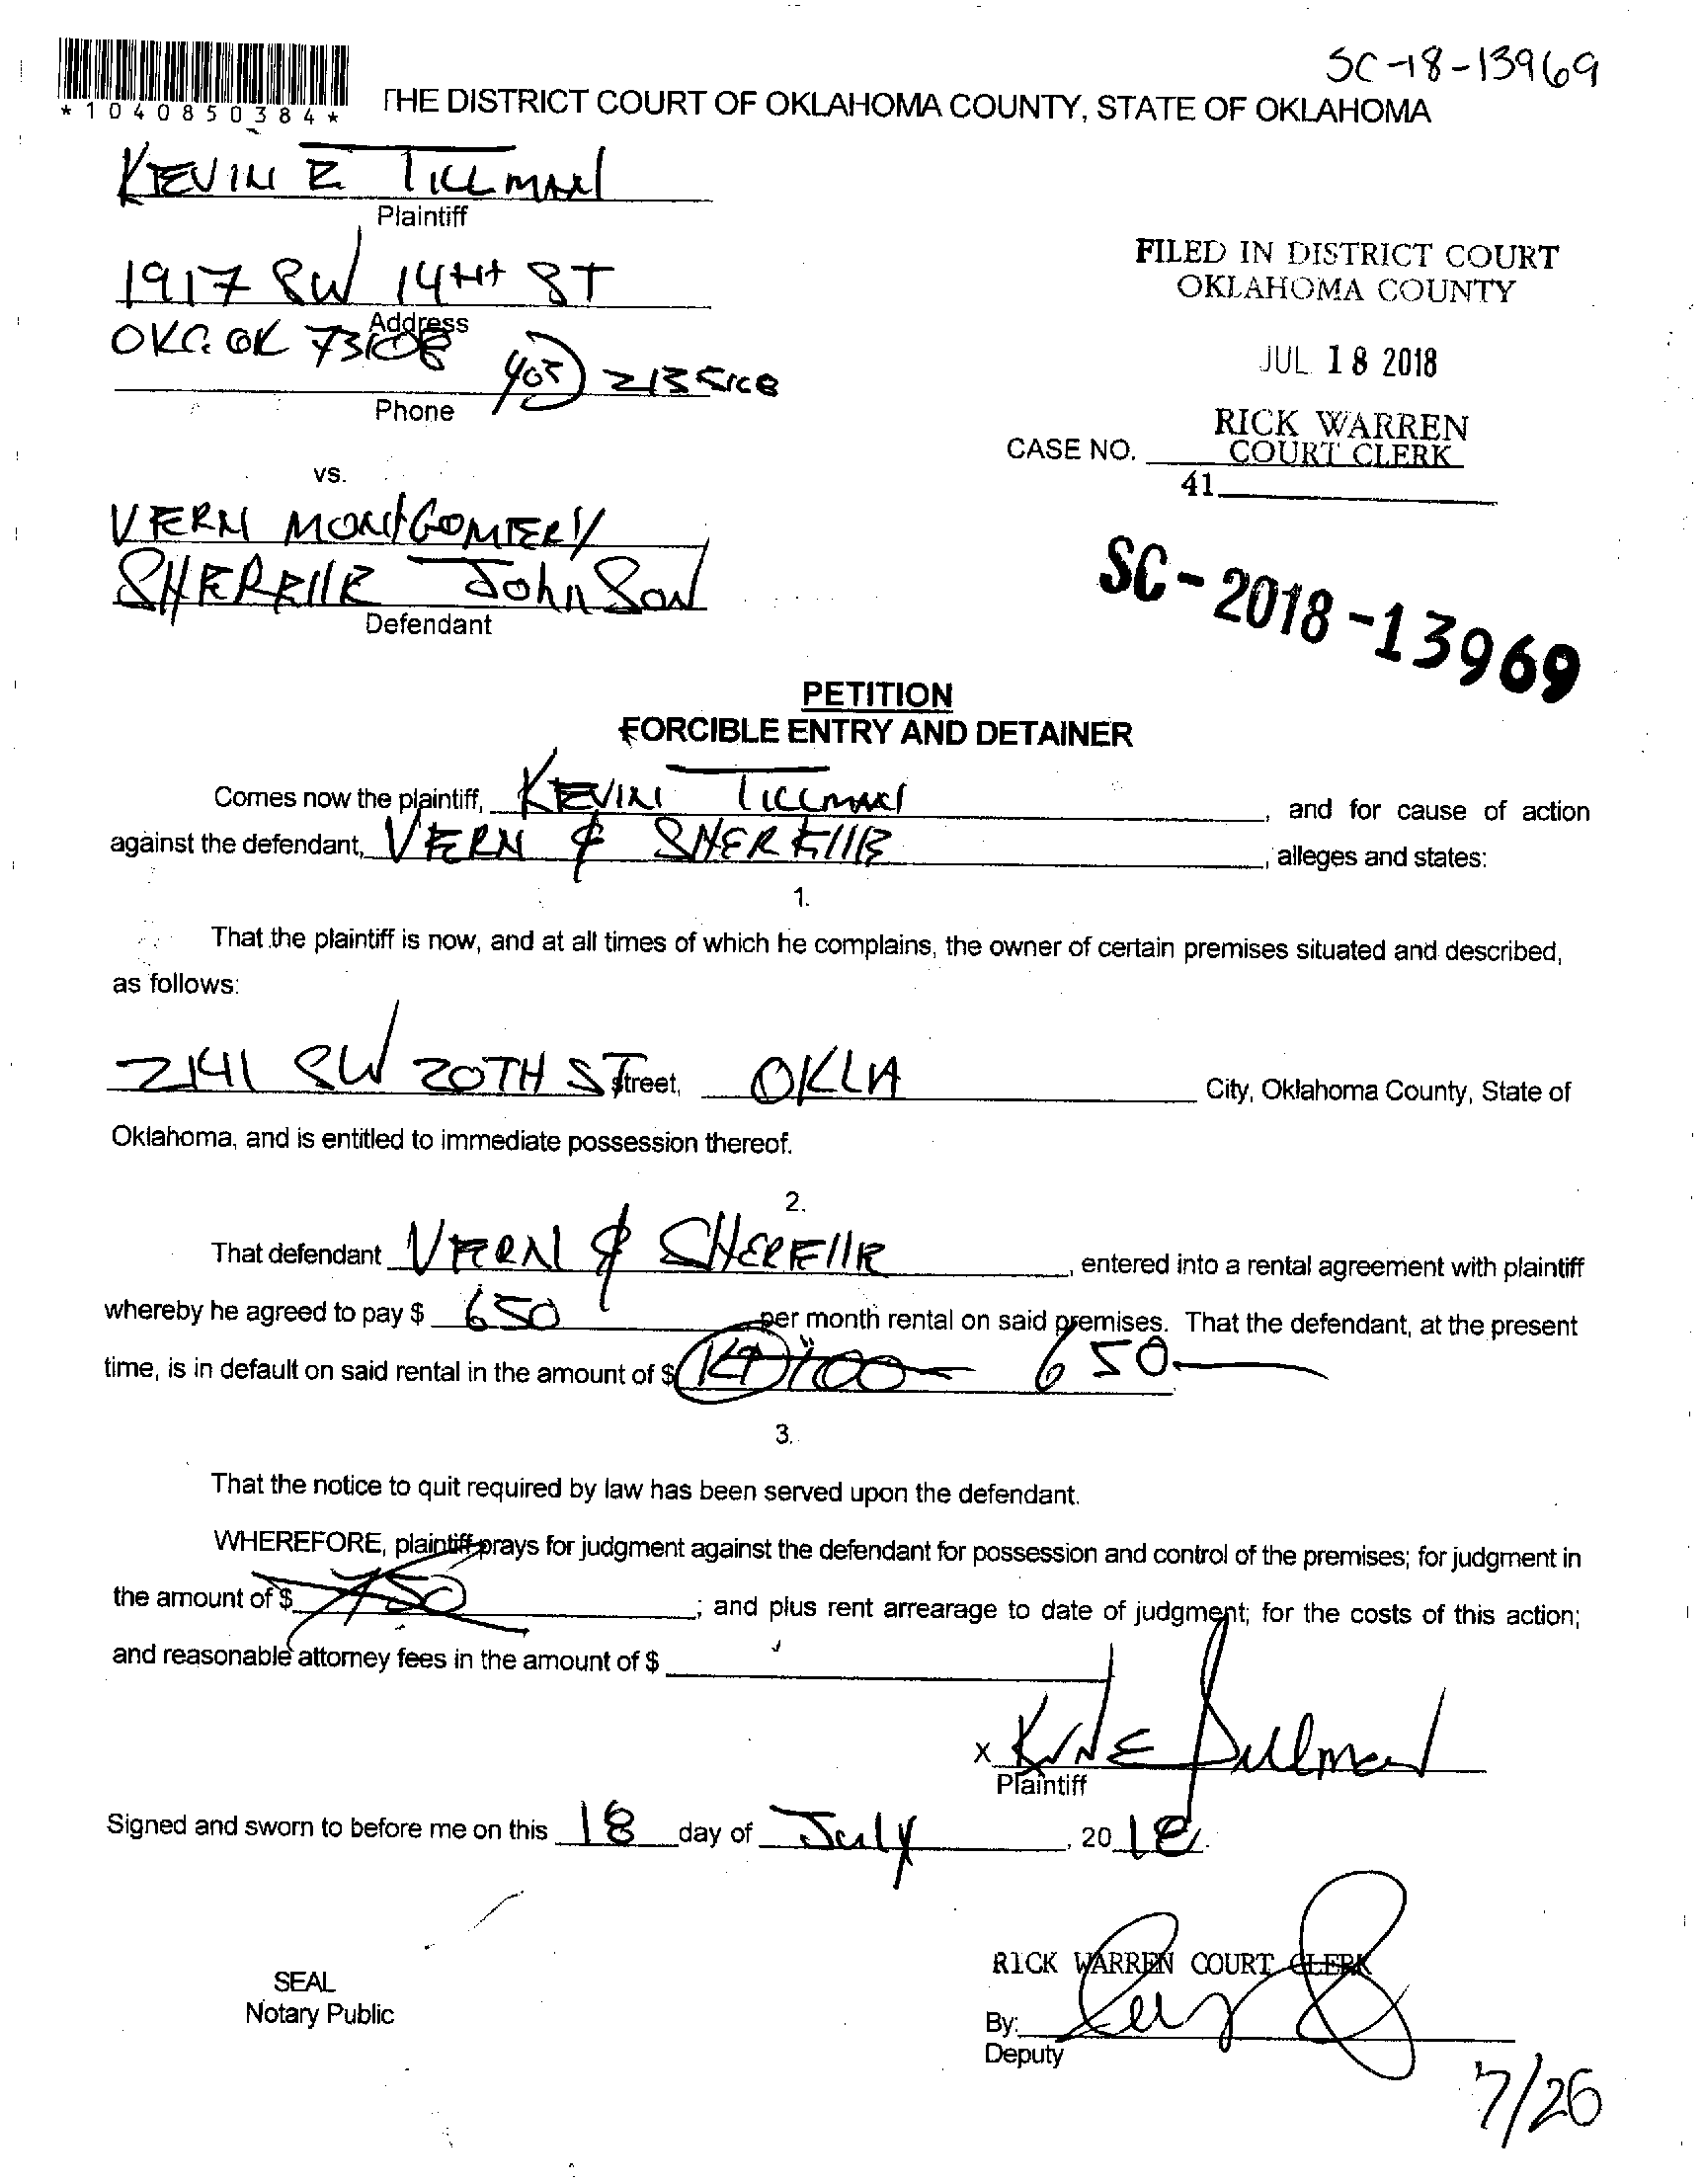 SC-18-13969
*1040850384*
THE DISTRICT COURT OF OKLAHOMA COUNTY, STATE OF OKLAHOMA
KEVIN E TILLMAN
Plaintiff
1917 SW 14TH ST
Address
OKC. OK 73108
405) 213
Phone
FILED IN DISTRICT COURT
OKLAHOMA COUNTY
JUL 18 2018
RICK WARREN
COURT CLERK
CASE NO.
41
vs.
VERN MONTGOMERY
SHERELLE JOHNSON
Defendant
SC-2018-13969
PETITION
FORCIBLE ENTRY AND DETAINER
Comes now the plaintiff, KEVIN TILLMAN, and for cause of action
against the defendant, VERN & SHERELLE, alleges and states:
1.
That the plaintiff is now, and at all times of which he complains, the owner of certain premises situated and described,
as follows:
2141 SW 20TH ST Street, OKLA City, Oklahoma County, State of
Oklahoma, and is entitled to immediate possession thereof.
2.
That defendant VERN & SHERELLE, entered into a rental agreement with plaintiff
whereby he agreed to pay $ 650 per month rental on said premises. That the defendant, at the present
time, is in default on said rental in the amount of $ KT 100 650
3.
That the notice to quit required by law has been served upon the defendant.
WHEREFORE, plaintiff prays for judgment against the defendant for possession and control of the premises; for judgment in
the amount of $ 750; and plus rent arrearage to date of judgment; for the costs of this action;
and reasonable attorney fees in the amount of $
x Kevin E Tillman
Plaintiff
Signed and sworn to before me on this 18 day of July, 2018.
SEAL
Notary Public
RICK WARREN COURT CLERK
By:
Deputy
7/26